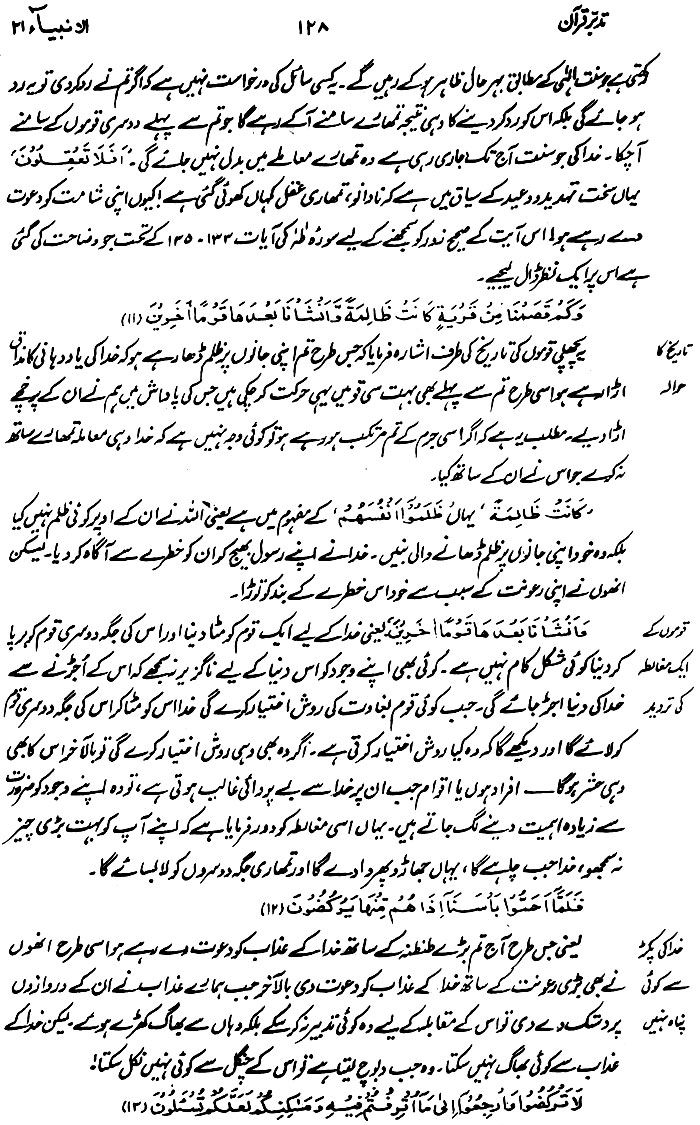 تدبر قرآن ۱۲۸ الانبیآء ۲۱
رکھتی ہے وہ سنت الٰہی کے مطابق بہرحال ظاہر ہو کے رہیں گے۔ یہ کسی سائل کی درخواست نہیں ہے کہ اگر تم نے رد کر دی تو یہ رد
ہو جائے گی بلکہ اس کو رد کر دینے کا وہی نتیجہ تمھارے سامنے آ کے رہے گا جو تم سے پہلے دوسری قوموں کے سامنے
آ چکا۔ خدا کی جو سنت آج تک جاری رہی ہے وہ تمھارے معاملے میں بدل نہیں جائے گی۔ 'اَفَلَا تَعْقِلُوْنَ'
یہاں سخت تہدید و وعید کے سیاق میں ہے کہ نادانو، تمھاری عقل کہاں کھوئی گئی ہے! کیوں اپنی شامت کو دعوت
دے رہے ہو! اس آیت کے صحیح زور کو سمجھنے کے لیے سورہ طٰہٰ کی آیات ۱۳۳-۱۳۵ کے تحت جو وضاحت کی گئی
ہے اس پر ایک نظر ڈال لیجیے۔
وَكَمْ قَصَمْنَا مِنْ قَرْيَةٍ كَانَتْ ظَالِمَةً وَّاَنْشَاْنَا بَعْدَهَا قَوْمًا اٰخَرِيْنَ (۱۱)
تاریخ کا یہ پچھلی قوموں کی تاریخ کی طرف اشارہ فرمایا کہ جس طرح تم اپنی جانوں پر ظلم ڈھا رہے ہو کہ خدا کی یاد دہانی کا مذاق
حوالہ اڑا رہے ہو اسی طرح تم سے پہلے بھی بہت سی قومیں یہی حرکت کر چکی ہیں جس کی پاداش میں ہم نے ان کے پرخچے
اڑا دیے۔ مطلب یہ ہے کہ اگر اسی جرم کے تم مرتکب ہو رہے ہو تو کوئی وجہ نہیں ہے کہ خدا وہی معاملہ تمھارے ساتھ
نہ کرے جو اس نے ان کے ساتھ کیا۔
'كَانَتْ ظَالِمَةً' یہاں 'ظَلَمُوْٓا اَنْفُسَهُمْ' کے مفہوم میں ہے یعنی اللہ نے ان کے اوپر کوئی ظلم نہیں کیا
بلکہ وہ خود اپنی جانوں پر ظلم ڈھانے والی بنیں۔ خدا نے اپنے رسول بھیج کر ان کو خطرے سے آگاہ کر دیا۔ لیکن
انھوں نے اپنی رعونت کے سبب سے خود اس خطرے کے بند کو توڑا۔
قوموں کے 'وَاَنْشَاْنَا بَعْدَهَا قَوْمًا اٰخَرِيْنَ' یعنی خدا کے لیے ایک قوم کو مٹا دینا اور اس کی جگہ دوسری قوم کو برپا
ایک مغالطہ کر دینا کوئی مشکل کام نہیں ہے۔ کوئی بھی اپنے وجود کو اس دنیا کے لیے ناگزیر نہ سمجھے کہ اس کے اُجڑنے سے
کی تردید خدا کی دنیا اجڑ جائے گی۔ جب کوئی قوم بغاوت کی روش اختیار کرے گی خدا اس کو مٹا کر اس کی جگہ دوسری قوم
کو لائے گا اور دیکھے گا کہ وہ کیا روش اختیار کرتی ہے۔ اگر وہ بھی وہی روش اختیار کرے گی تو بالآخر اس کا بھی
وہی حشر ہوگا — افراد ہوں یا اقوام جب ان پر خدا سے بے پروائی غالب ہوتی ہے، تو وہ اپنے وجود کو ضرورت
سے زیادہ اہمیت دینے لگ جاتے ہیں۔ یہاں اسی مغالطہ کو دور فرمایا ہے کہ اپنے آپ کو بہت بڑی چیز
نہ سمجھو، خدا جب چاہے گا، یہاں جھاڑو پھیر دے گا اور تمھاری جگہ دوسروں کو لا بسائے گا۔
فَلَمَّآ اَحَسُّوْا بَاْسَنَآ اِذَا هُمْ مِّنْهَا يَرْكُضُوْنَ (۱۲)
خدا کی پکڑ یعنی جس طرح آج تم بڑے طنطنہ کے ساتھ خدا کے عذاب کو دعوت دے رہے ہو اسی طرح انھوں
سے کوئی نے بھی بڑی رعونت کے ساتھ خدا کے عذاب کو دعوت دی بالآخر جب ہمارے عذاب نے ان کے دروازوں
پناہ نہیں پر دستک دے دی تو اس کے مقابلہ کے لیے وہ کوئی تدبیر نہ کر سکے بلکہ وہاں سے بھاگ کھڑے ہوئے لیکن خدا کے
عذاب سے کوئی بھاگ نہیں سکتا۔ وہ جب دبوچ لیتا ہے تو اس کے چنگل سے کوئی نہیں نکل سکتا!
لَا تَرْكُضُوْا وَارْجِعُوْٓا اِلٰى مَآ اُتْرِفْتُمْ فِيْهِ وَمَسٰكِنِكُمْ لَعَلَّكُمْ تُسْـَٔلُوْنَ (۱۳)